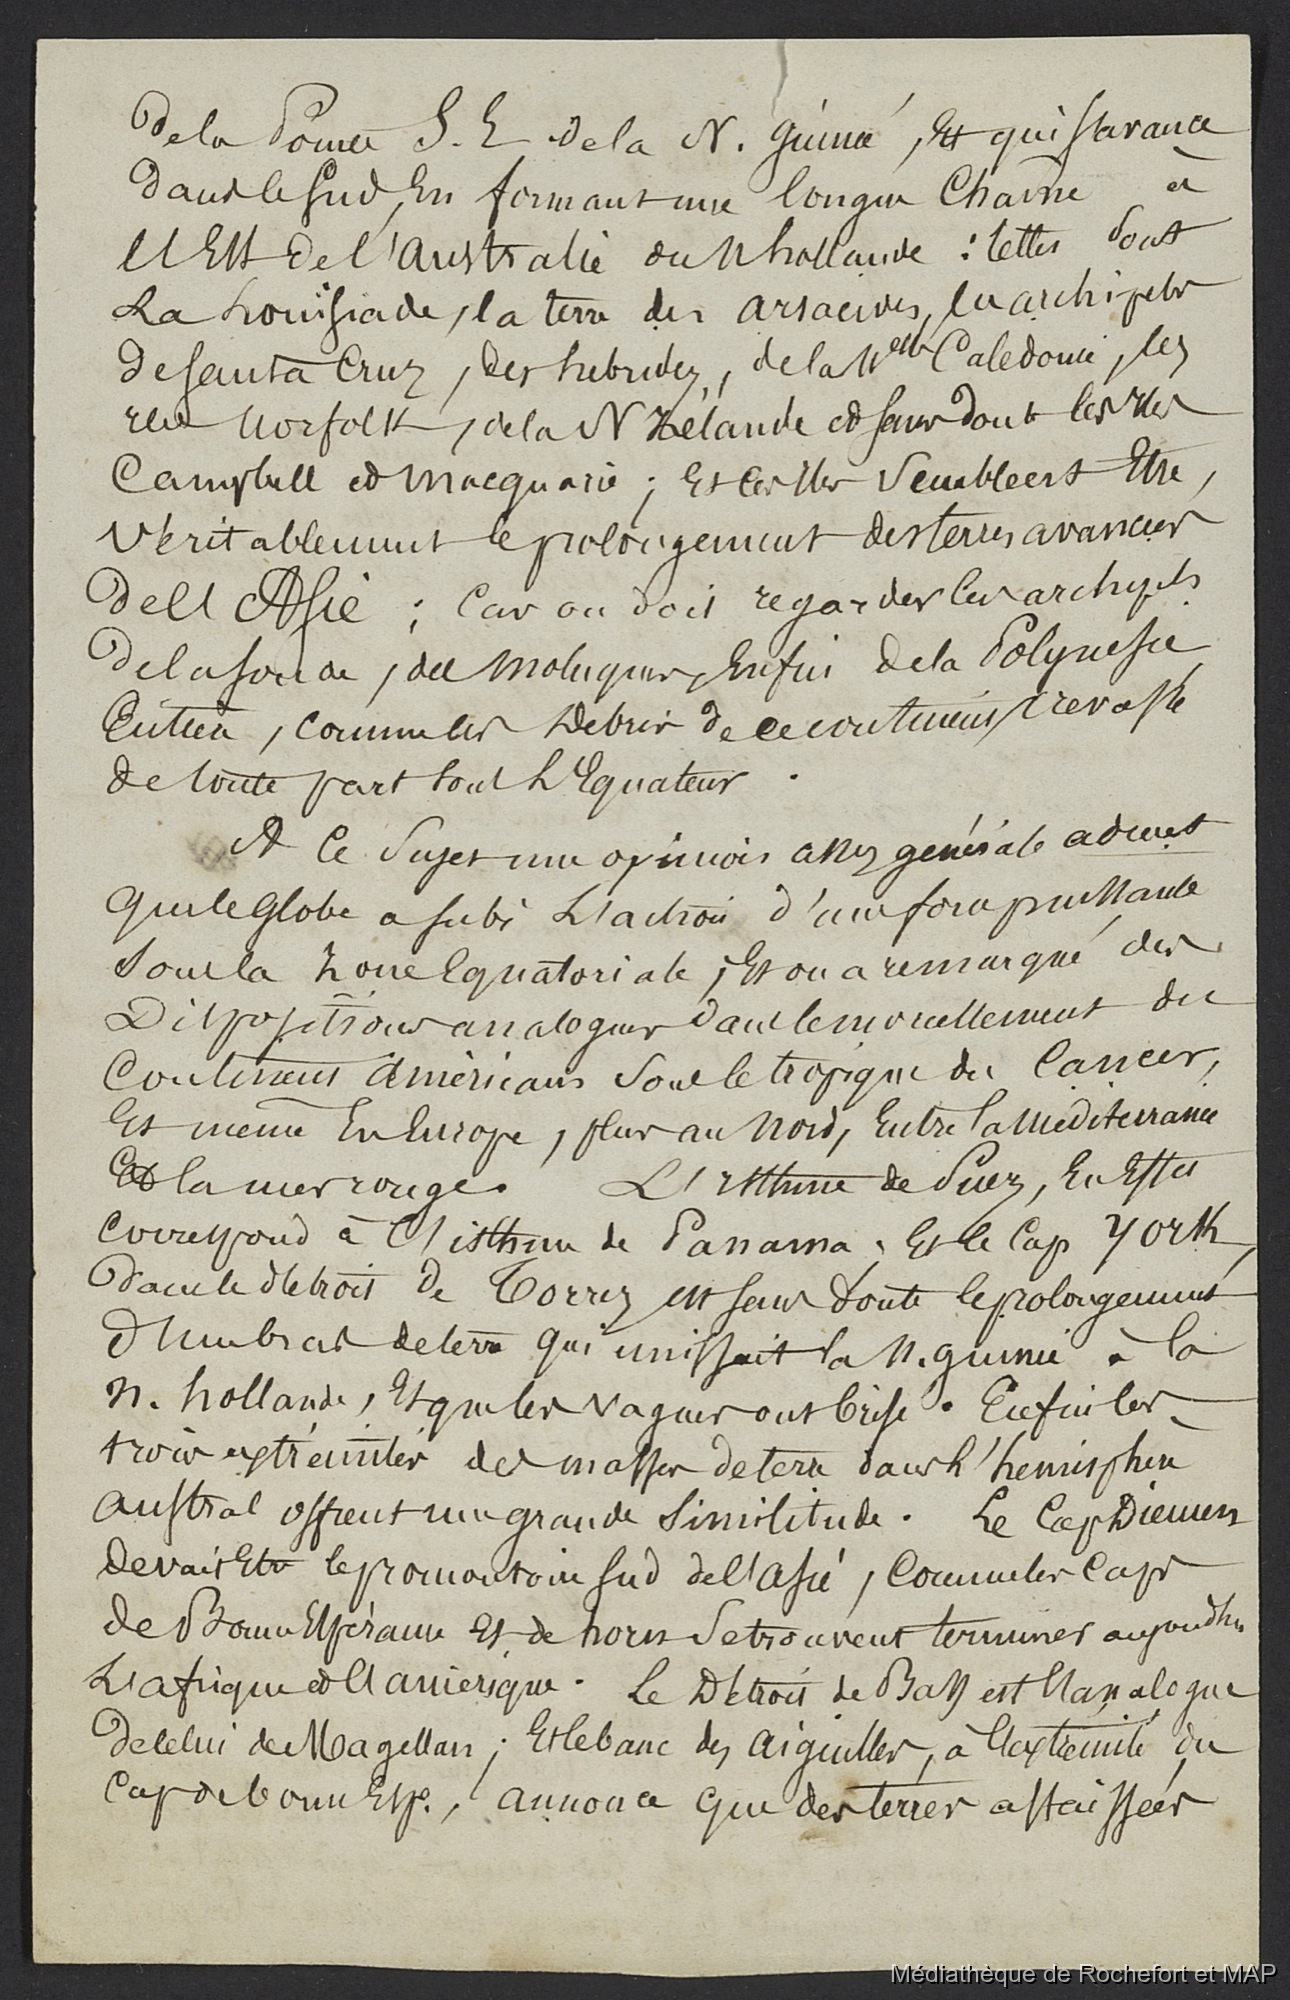 De la Pointe S. E de la N. Guinée, Et qui s'avance
Dans le Sud, En formant une longue Chaine à
l'Est de l'Australie ou N hollande : telles sont
La Louisiade, la terre des arsacides, les archipels
de Santa Cruz, des hebrides, de la Nelle Caledonie, les
iles Norfolk, de la N Zélande et sans doute les iles
Campbell et Macquarie ; Et ces iles semblent Etre,
Véritablement le prolongement des terres avancées
De l'Asie ; Car on doit regarder les archipels
De la sonde, des Moluques, Enfin de la Polynesie
Entière, comme les Debris de ce continent crevassé
de toute part sous L'Equateur .
A Ce Sujet une opinion assez générale admet
Que le Globe a subi L'action d'une force puissante
Sous la Zone Equatoriale ; Et on a remarqué des
Dispositions analogues dans le morcellement du
Continent américain sous le tropique du Cancer,
Et meme En Europe, plus au Nord, Entre la Méditerranée
Et la mer rouge. L'isthme de Suez, En Effet
Correspond à l'isthme de Panama ; Et le Cap York,
Dans le detroit de Torrez est sans doute le prolongement
D'un bras de terre qui unissait la N. guinée à la
n. hollande, Et que les vagues ont brisé. Enfin les
trois extrémités des masses de terre dans L'hemisphère
austral offrent une grande similitude. Le Cap Diemen
devait Etre le promontoire sud de l'asie, Comme les Caps
de Bonne Espérance Et de horn se trouvent terminer aujourdhui
L'afrique et l'amérique. Le Détroit de Bass est l'analogue
De celui de Magellan ; Et le banc des Aiguilles, à l'extrémité du
Cap de bonne Esp., annonce que des terres affaissées
Médiathèque de Rochefort et MAP